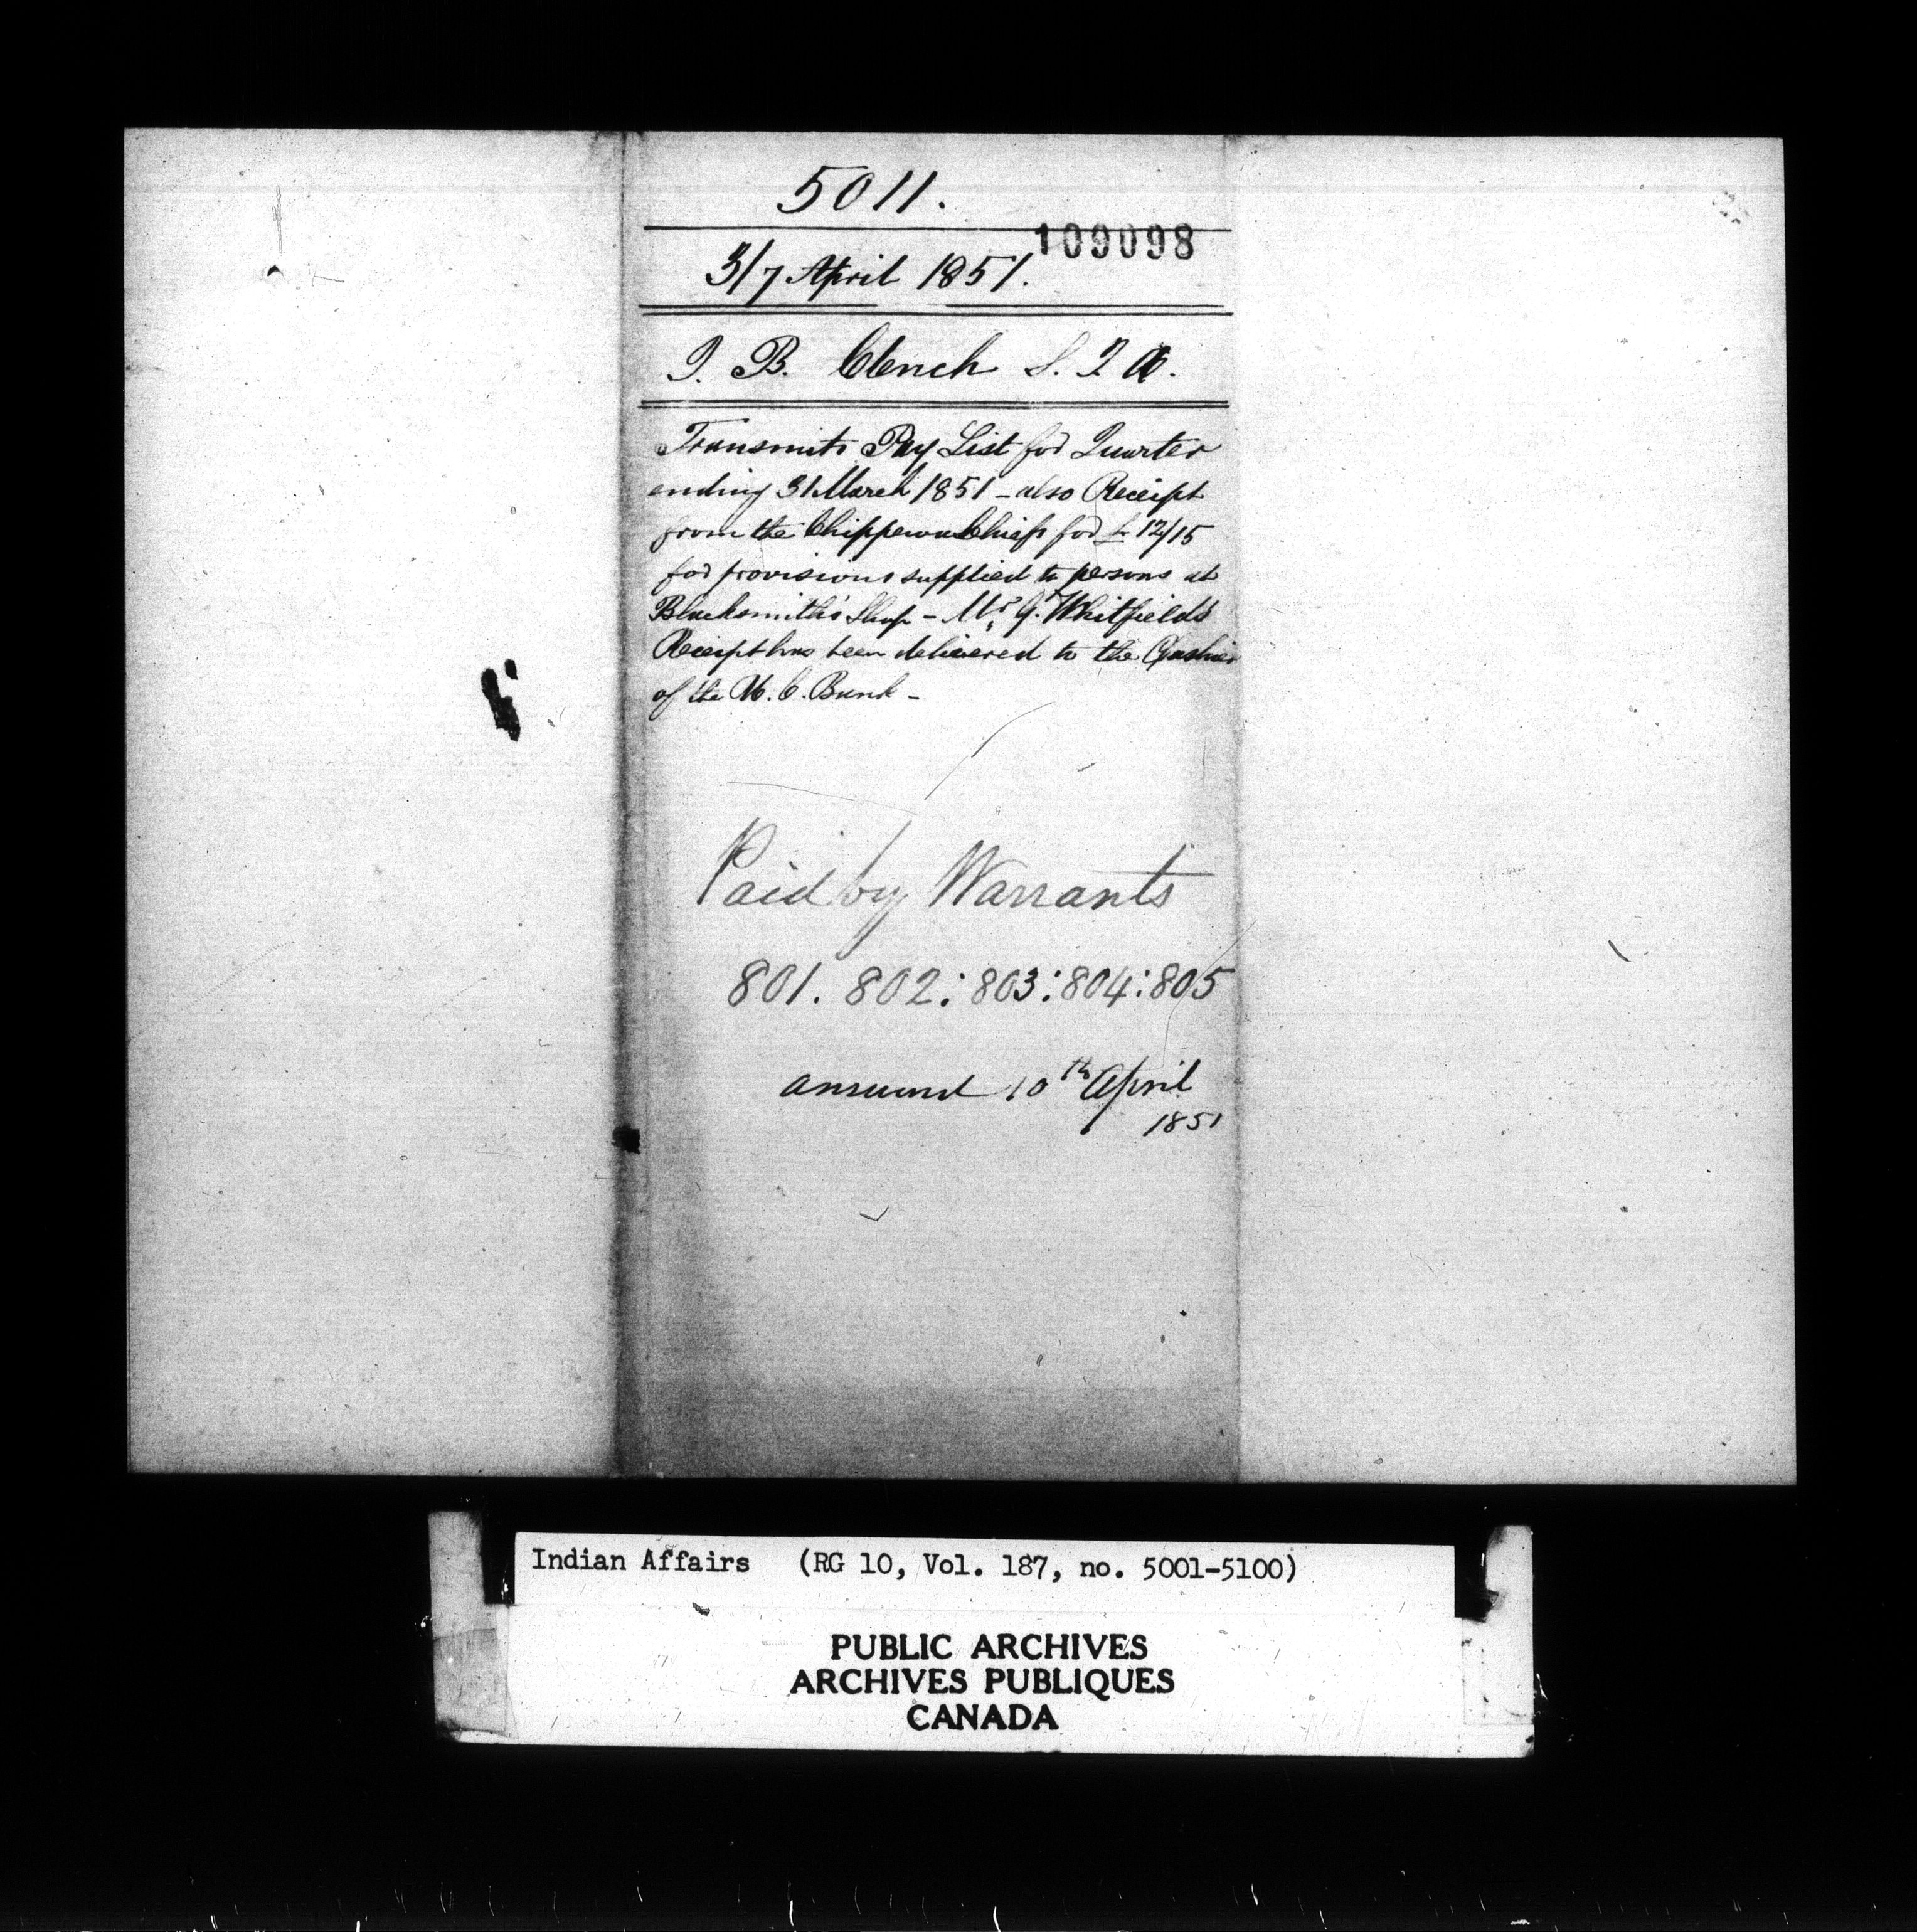 5011.
109098
3/7 April 1851.
J. B. Clench S. I. A.
Transmits Pay List for Quarter
ending 31 March 1851 – also Receipt
from the Chippewa Chiefs for £12/15
for provisions supplied to persons at
Blacksmith's Shop – Mr. J. Whitfield's
Receipt has been delivered to the Cashier
of the U. C. Bank –
Paid by Warrants
801. 802: 803: 804: 805
answered 10th April
1851
Indian Affairs (RG 10, Vol. 187, no. 5001-5100)
PUBLIC ARCHIVES
ARCHIVES PUBLIQUES
CANADA